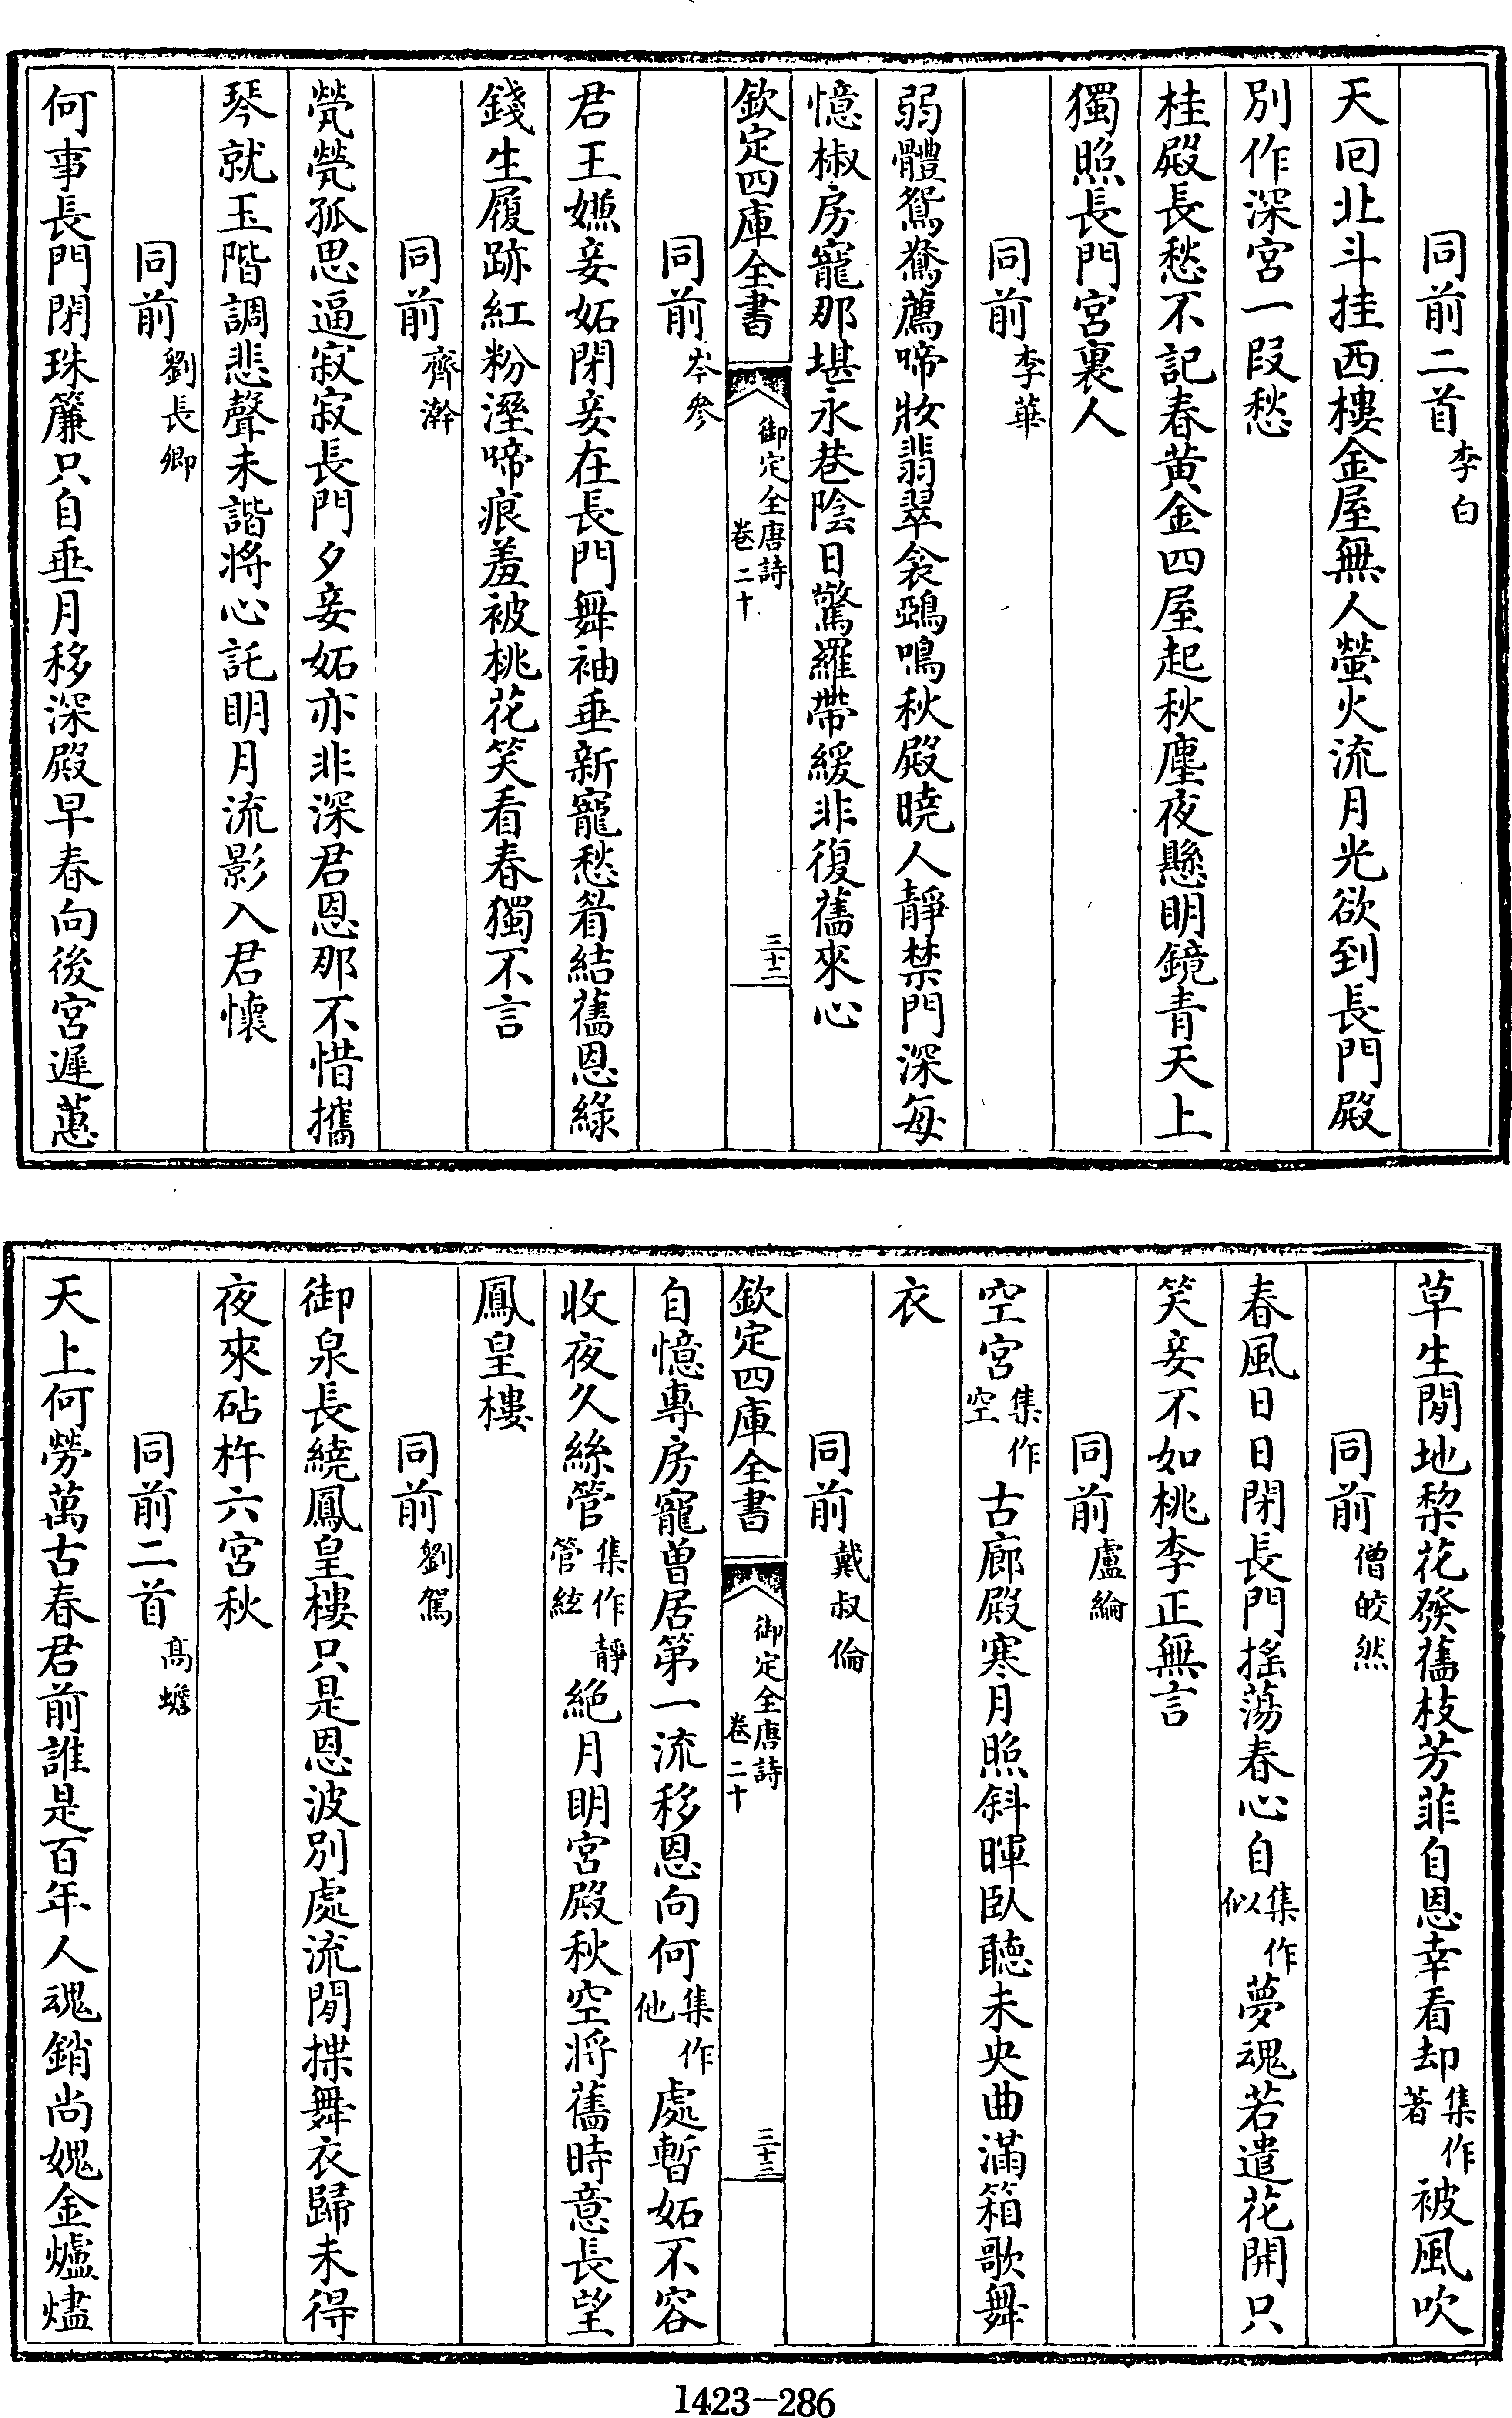 同前二首李白
天回北斗挂西樓金屋無人螢火流月光欲到長門殿
別作深宮一段愁
桂殿長愁不記春黄金四屋起秋塵夜懸明鏡青天上
獨照長門宮裏人
同前李華
弱體鴛鴦薦啼妝翡翠衾鵶鳴秋殿曉人靜禁門深每
憶椒房寵那堪永巷陰日驚羅帶緩非復舊來心
欽定四庫全書 御定全唐詩卷二十 三十二
同前岑參
君王嫌妾妬閉妾在長門舞袖垂新寵愁眉結舊恩綠
錢生履跡紅粉溼啼痕羞被桃花笑看春獨不言
同前齊澣
煢煢孤思逼寂寂長門夕妾妬亦非深君恩那不惜攜
琴就玉階調悲聲未諧將心託明月流影入君懷
同前劉長卿
何事長門閉珠簾只自垂月移深殿早春向後宮遲蕙
草生閒地棃花發舊枝芳菲自恩幸看却集作著被風吹
同前僧皎然
春風日日閉長門摇蕩春心自集作似夢魂若遣花開只
笑妾不如桃李正無言
同前盧綸
空宮集作空古廊殿寒月照斜暉臥聽未央曲滿箱歌舞
衣
同前戴叔倫
欽定四庫全書 御定全唐詩卷二十 三十三
自憶專房寵曾居第一流移恩向何集作他處暫妬不容
收夜久絲管集作靜管絃絕月明宮殿秋空將舊時意長望
鳳皇樓
同前劉駕
御泉長繞鳳皇樓只是恩波別處流閒揲舞衣歸未得
夜來砧杵六宮秋
同前二首高蟾
天上何勞萬古春君前誰是百年人魂銷尚媿金爐燼
1423-286